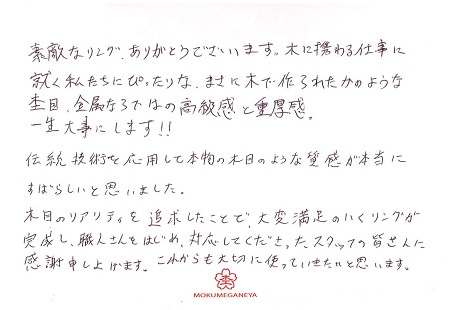 素敵なリング、ありがとうございます。木に携わる仕事に
就く私たちにぴったりな、まさに木で作られたかのような
杢目、金属ならではの高級感と重厚感。
一生大事にします!!
伝統技術を応用して本物の木目のような質感が本当に
すばらしいと思いました。
木目のリアリティを追求したことで、大変満足のいくリングが
完成し、職人さんをはじめ、対応してくださったスタッフの皆さんに
感謝申し上げます。これからも大切に使っていきたいと思います。
MOKUMEGANEYA